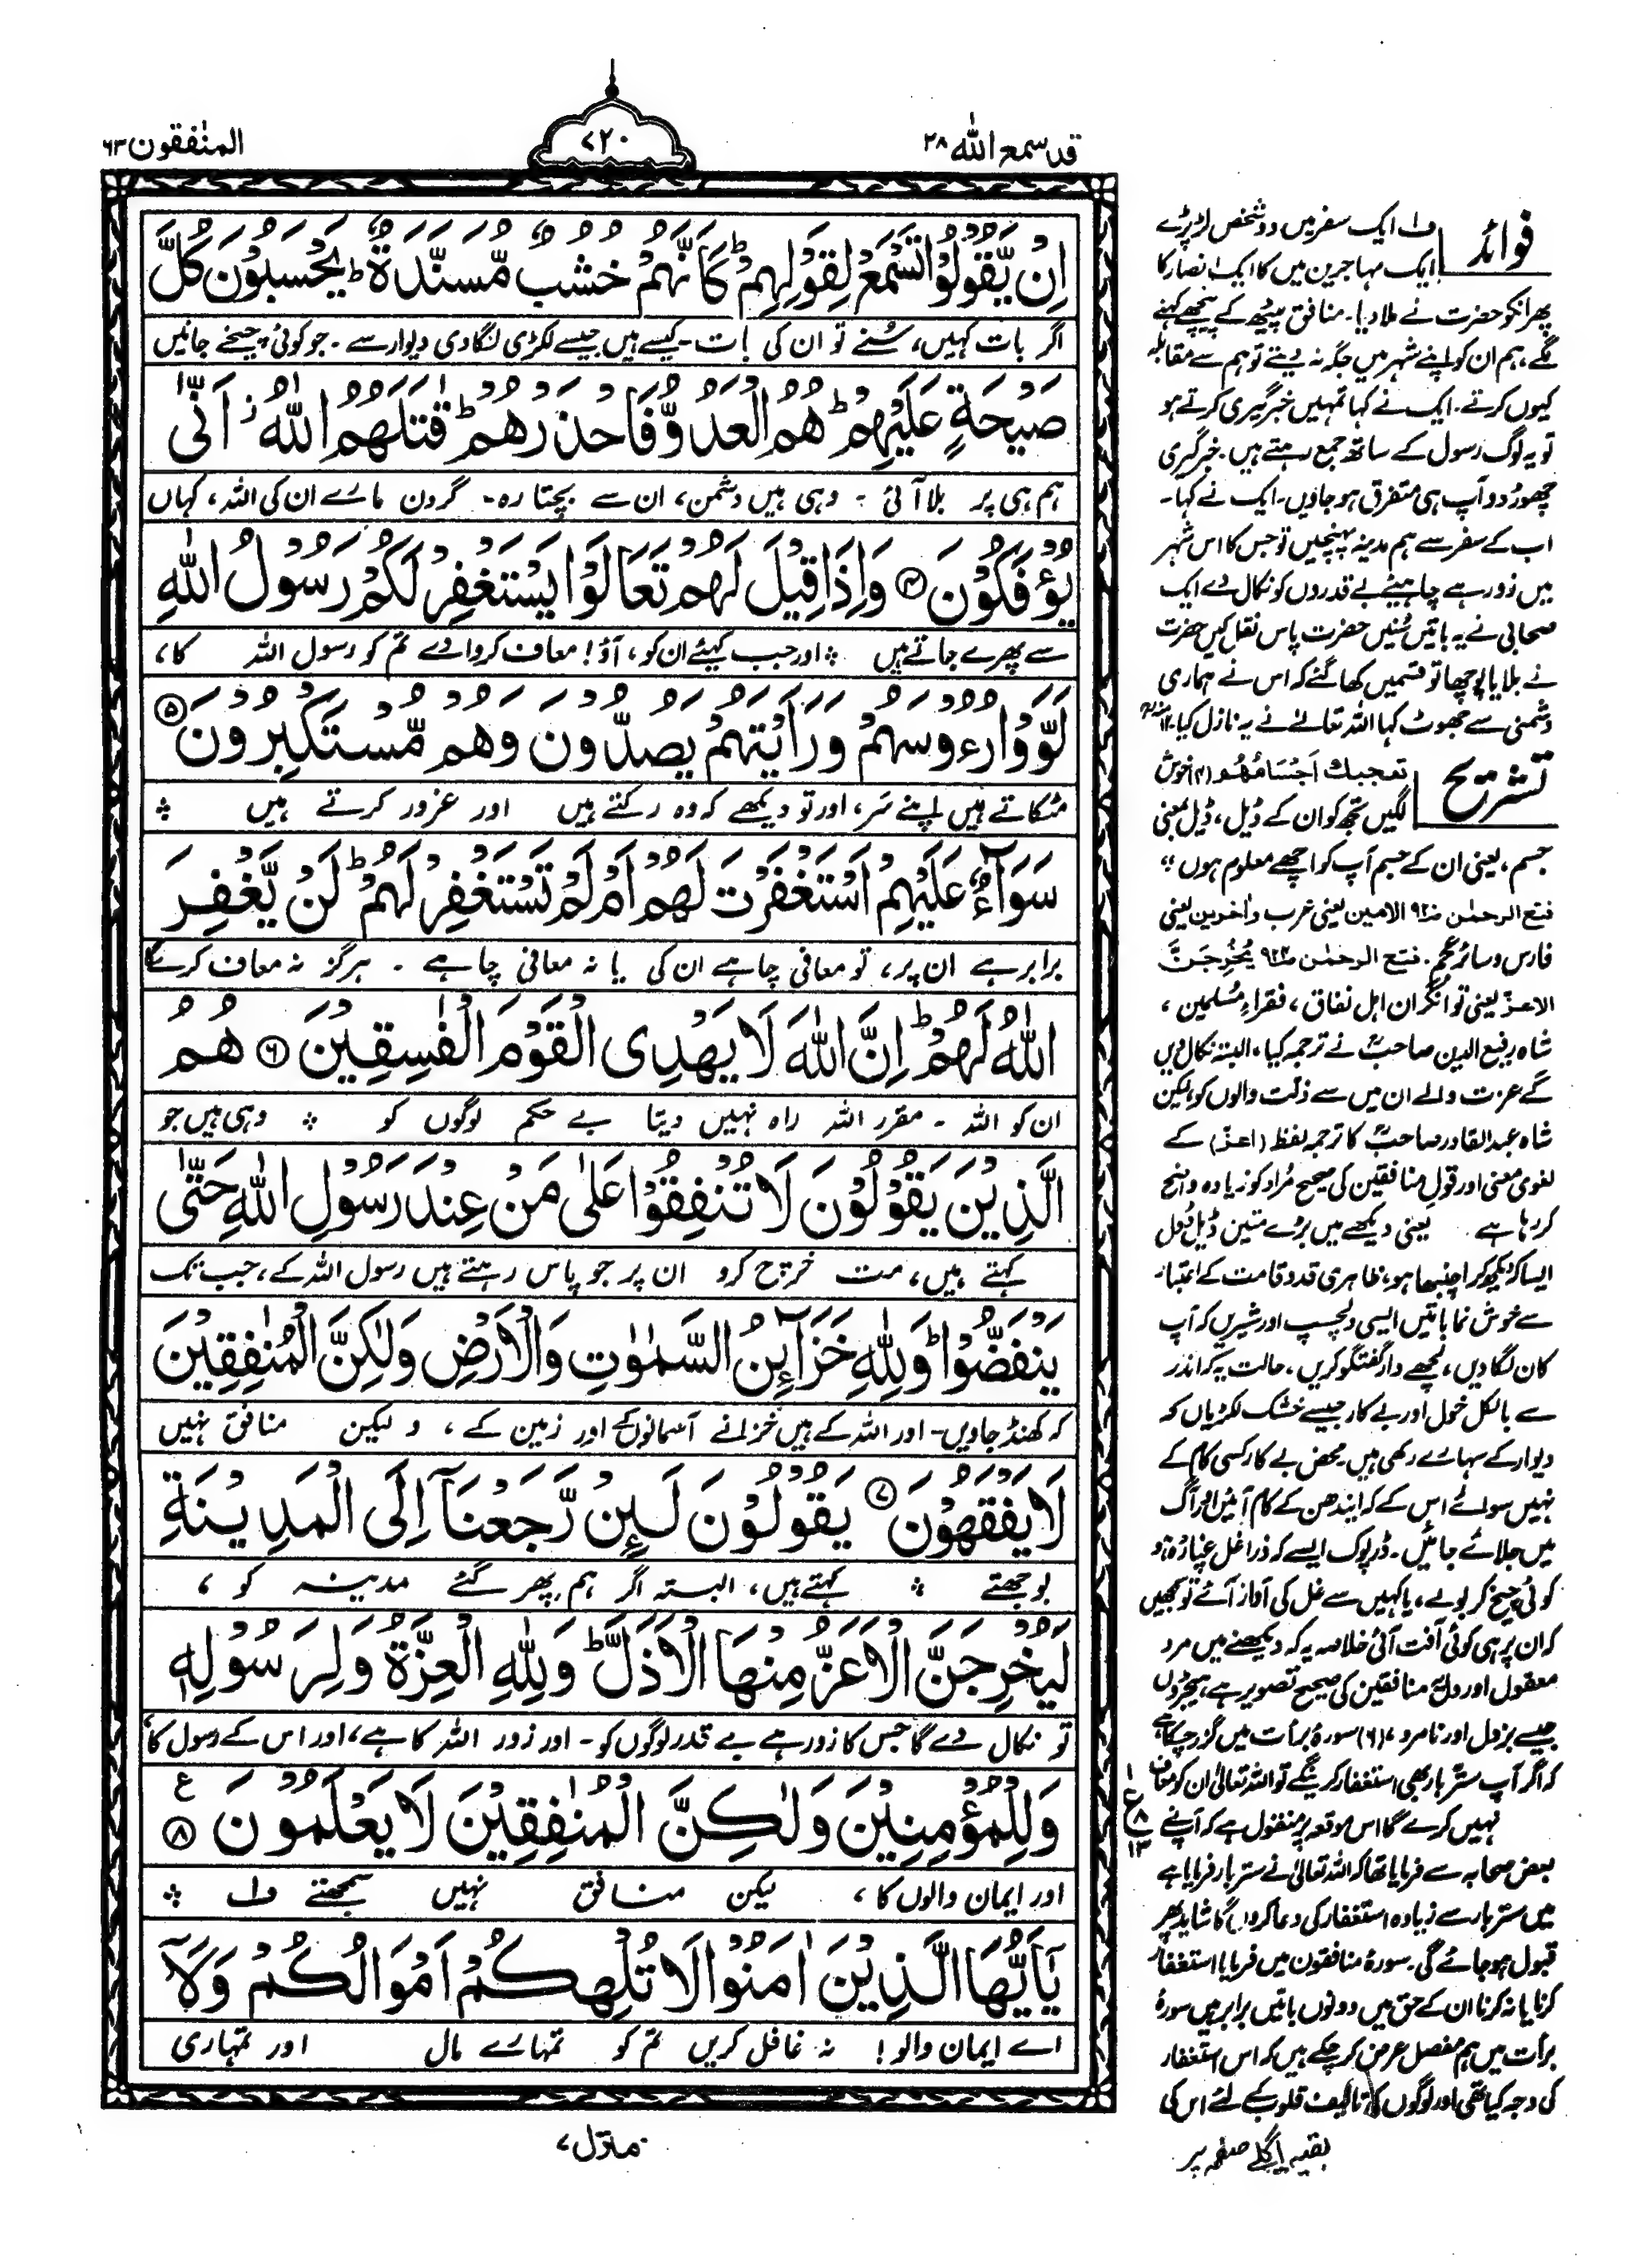 قد سمع الله ۲۸
۷۲۰
المنٰفقون ۶۳
اِنْ يَّقُوْلُوْا تَسْمَعْ لِقَوْلِهِمْ ؕ كَاَنَّهُمْ خُشُبٌ مُّسَنَّدَةٌ ؕ يَحْسَبُوْنَ كُلَّ
اگر بات کہیں، سُنے تو ان کی بات۔ کیسے ہیں جیسے لکڑی لگا دی دیوار سے۔ جو کوئی چیخے جانیں
صَيْحَةٍ عَلَيْهِمْ ؕ هُمُ الْعَدُوُّ فَاحْذَرْهُمْ ؕ قٰتَلَهُمُ اللّٰهُ ز اَنّٰى
ہم ہی پر بلا آئی ۔ وہی ہیں دشمن، ان سے بچتا رہ۔ گردن مارے ان کی اللہ، کہاں
يُؤْفَكُوْنَ ۴ وَاِذَا قِيْلَ لَهُمْ تَعَالَوْا يَسْتَغْفِرْ لَكُمْ رَسُوْلُ اللّٰهِ
سے پھرے جاتے ہیں ؞ اور جب کہیئے ان کو، آؤ! معاف کروا دے تم کو رسول اللہ کا،
لَوَّوْا رُءُوْسَهُمْ وَرَاَيْتَهُمْ يَصُدُّوْنَ وَهُمْ مُّسْتَكْبِرُوْنَ ۵
مٹکاتے ہیں اپنے سَر، اور تو دیکھے کہ وہ رکتے ہیں اور غرور کرتے ہیں ؞
سَوَآءٌ عَلَيْهِمْ اَسْتَغْفَرْتَ لَهُمْ اَمْ لَمْ تَسْتَغْفِرْ لَهُمْ ؕ لَنْ يَّغْفِرَ
برابر ہے ان پر، تو معافی چاہے ان کی یا نہ معافی چاہے ۔ ہرگز نہ معاف کرے گا
اللّٰهُ لَهُمْ ؕ اِنَّ اللّٰهَ لَا يَهْدِى الْقَوْمَ الْفٰسِقِيْنَ ۶ هُمُ
ان کو اللہ ۔ مقرر اللہ راہ نہیں دیتا بے حکم لوگوں کو ؞ وہی ہیں جو
الَّذِيْنَ يَقُوْلُوْنَ لَا تُنْفِقُوْا عَلٰى مَنْ عِنْدَ رَسُوْلِ اللّٰهِ حَتّٰى
کہتے ہیں، مت خرچ کرو ان پر جو پاس رہتے ہیں رسول اللہ کے، جب تک
يَنْفَضُّوْا ؕ وَلِلّٰهِ خَزَآئِنُ السَّمٰوٰتِ وَالْاَرْضِ وَلٰكِنَّ الْمُنٰفِقِيْنَ
کہ کھنڈ جاویں۔ اور اللہ کے ہیں خزانے آسمانوں کے اور زمین کے، و لیکن منافق نہیں
لَا يَفْقَهُوْنَ ۷ يَقُوْلُوْنَ لَئِنْ رَّجَعْنَآ اِلَى الْمَدِيْنَةِ
بوجھتے ؞ کہتے ہیں، البتہ اگر ہم پھر گئے مدینہ کو ،
لَيُخْرِجَنَّ الْاَعَزُّ مِنْهَا الْاَذَلَّ ؕ وَلِلّٰهِ الْعِزَّةُ وَلِرَسُوْلِهٖ
تو نکال دے گا جس کا زور ہے بے قدر لوگوں کو۔ اور زور اللہ کا ہے، اور اس کے رسول کا،
وَلِلْمُؤْمِنِيْنَ وَلٰكِنَّ الْمُنٰفِقِيْنَ لَا يَعْلَمُوْنَ ۸ ع
اور ایمان والوں کا، لیکن منافق نہیں سمجھتے ف۱ ؞
يٰٓاَيُّهَا الَّذِيْنَ اٰمَنُوْا لَا تُلْهِكُمْ اَمْوَالُكُمْ وَلَآ
اے ایمان والو! نہ غافل کریں تم کو تمہارے مال اور تمہاری
منزل ۷
فوائد
ف۱ ایک سفر میں دو شخص لڑ پڑے
ایک مہاجرین میں کا ایک انصار کا
پھر انکو حضرت نے ملا دیا۔ منافق پیٹھ کے پیچھے کہنے
لگے، ہم ان کو اپنے شہر میں جگہ نہ دیتے تو ہم سے مقابلہ
کیوں کرتے۔ ایک نے کہا تمہیں خبرگیری کرتے ہو
تو یہ لوگ رسول کے ساتھ جمع رہتے ہیں۔ خبرگیری
چھوڑ دو آپ ہی متفرق ہو جاویں۔ ایک نے کہا۔
اب کے سفر سے ہم مدینہ پہنچیں تو جس کا اس شہر
میں زور ہے چاہیئے بے قدروں کو نکال دے ایک
صحابی نے یہ باتیں سُنیں حضرت پاس نقل کیں حضرت
نے بلایا پوچھا تو قسمیں کھا گئے کہ اس نے ہماری
دشمنی سے جھوٹ کہا اللہ تعالےٰ نے یہ نازل کیا۔ ۱۲ منہ
تشریح
تعجبك اَجْسَامُهُمْ (۴) خوش
لگیں تجھ کو ان کے ڈیل، ڈیل بمعنی
جسم، یعنی ان کے جسم آپ کو اچھے معلوم ہوں
فتح الرحمٰن الامین یعنی عرب واٰخرین یعنی
فارس و سائر عجم۔ فتح الرحمٰن يُخْرِجَنَّ
الاعزّ یعنی توانگران اہل نفاق، فقراءِ مُسلمین،
شاہ رفیع الدین صاحبؒ نے ترجمہ کیا، البتہ نکال دیں
گے عزت والے ان میں سے ذلت والوں کو، لیکن
شاہ عبدالقادر صاحبؒ کا ترجمہ لفظ (اعزّ) کے
لغوی معنی اور قول منافقین کی صحیح مُراد کو زیادہ واضح
کر رہا ہے یعنی دیکھے میں بڑے متین ڈیل ڈول
ایسا کہ دیکھ کر اچنبھا ہو، ظاہری قد و قامت کے اعتبار
سے خوش نما باتیں ایسی دلچسپ اور شیریں کہ آپ
کان لگا دیں، لچھے دار گفتگو کریں۔ حالت یہ کہ اندر
سے بالکل خول اور بے کار جیسے خشک لکڑیاں کہ
دیوار کے سہارے رکھی ہیں۔ محض بے کار کسی کام کے
نہیں سوائے اس کے کہ ایندھن کے کام آئیں اور آگ
میں جلائے جائیں۔ ڈرپوک ایسے کہ ذرا غل غپاڑہ ہو
کوئی چیخ کر بولے، یا کہیں سے غل کی آواز آئے تو سمجھیں
کہ ان پر ہی کوئی آفت آئی خلاصہ یہ کہ دیکھنے میں مرد
معقول اور منافقین کی صحیح تصویر ہے، ہیجڑوں
جیسے بزدل اور نامرد، (۶) سورۂ برأت میں گزر چکا ہے
کہ اگر آپ ستّر بار بھی استغفار کرینگے تو اللہ تعالیٰ ان کو معاف
نہیں کرے گا اس موقعہ پر منقول ہے کہ آپ نے
بعض صحابہ سے فرمایا تھا کہ اللہ تعالیٰ نے ستر بار فرمایا ہے
میں ستر بار سے زیادہ استغفار کی دعا کروں گا شاید پھر
قبول ہو جائے گی۔ سورۂ منافقون میں فرمایا استغفار
کرنا یا نہ کرنا ان کے حق میں دونوں باتیں برابر ہیں سورۂ
برأت میں ہم مفصل عرض کر چکے ہیں کہ اس استغفار
کی وجہ کیا تھی اور لوگوں کی تالیف قلوب کے لئے اس کی
بقیہ اگلے صفحہ پر
۱
ع
۸
۱۳